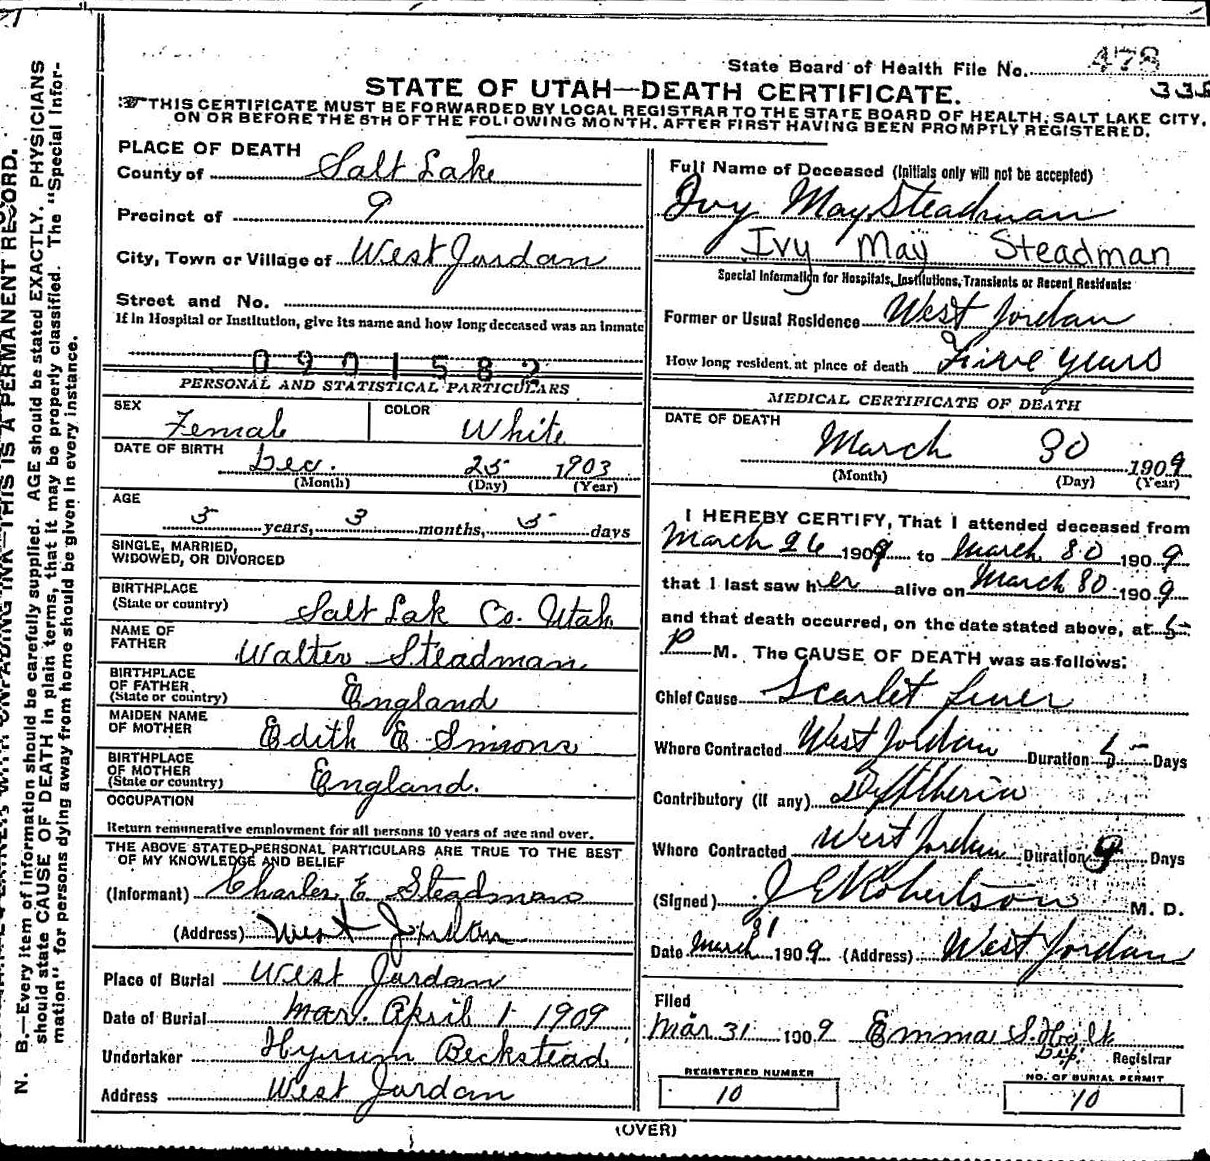 State Board of Health File No. 478
338
STATE OF UTAH—DEATH CERTIFICATE.
THIS CERTIFICATE MUST BE FORWARDED BY LOCAL REGISTRAR TO THE STATE BOARD OF HEALTH, SALT LAKE CITY,
ON OR BEFORE THE 5TH OF THE FOLLOWING MONTH, AFTER FIRST HAVING BEEN PROMPTLY REGISTERED.
PLACE OF DEATH
County of Salt Lake
Precinct of 9
City, Town or Village of West Jordan
Street and No.
If in Hospital or Institution, give its name and how long deceased was an inmate
0901582
PERSONAL AND STATISTICAL PARTICULARS
SEX Female COLOR White
DATE OF BIRTH Dec. 25 1903
(Month) (Day) (Year)
AGE
5 years, 3 months, 5 days
SINGLE, MARRIED,
WIDOWED, OR DIVORCED
BIRTHPLACE
(State or country) Salt Lak Co. Utah
NAME OF
FATHER Walter Steadman
BIRTHPLACE
OF FATHER
(State or country) England
MAIDEN NAME
OF MOTHER Edith E Simons
BIRTHPLACE
OF MOTHER
(State or country) England.
OCCUPATION
Return remunerative employment for all persons 10 years of age and over.
THE ABOVE STATED PERSONAL PARTICULARS ARE TRUE TO THE BEST
OF MY KNOWLEDGE AND BELIEF
(Informant) Charles E Steadman
(Address) West Jordan
Place of Burial West Jordan
Date of Burial Mar. April 1 1909
Undertaker Hyrum Beckstead
Address West Jordan
Full Name of Deceased (Initials only will not be accepted)
Ivy May Steadman
Ivy May Steadman
Special Information for Hospitals, Institutions, Transients or Recent Residents:
Former or Usual Residence West Jordan
How long resident at place of death Five years
MEDICAL CERTIFICATE OF DEATH
DATE OF DEATH
March 30 1909
(Month) (Day) (Year)
I HEREBY CERTIFY, That I attended deceased from
March 26 1909 to March 30 1909
that I last saw her alive on March 30 1909
and that death occurred, on the date stated above, at 5
P M. The CAUSE OF DEATH was as follows:
Chief Cause Scarlet fever
Where Contracted West Jordan Duration 5 Days
Contributory (If any) Dyftheria
Where Contracted West Jordan Duration 9 Days
(Signed) J E Robertson M. D.
Date March 31 1909 (Address) West Jordan
Filed
Mar 31 1909 Emma S.
Dep. Registrar
REGISTERED NUMBER
10
NO. OF BURIAL PERMIT
10
(OVER)
N. B.—Every item of information should be carefully supplied. AGE should be stated EXACTLY. PHYSICIANS
should state CAUSE OF DEATH in plain terms, that it may be properly classified. The "Special Infor-
mation" for persons dying away from home should be given in every instance.
THIS IS A PERMANENT RECORD.